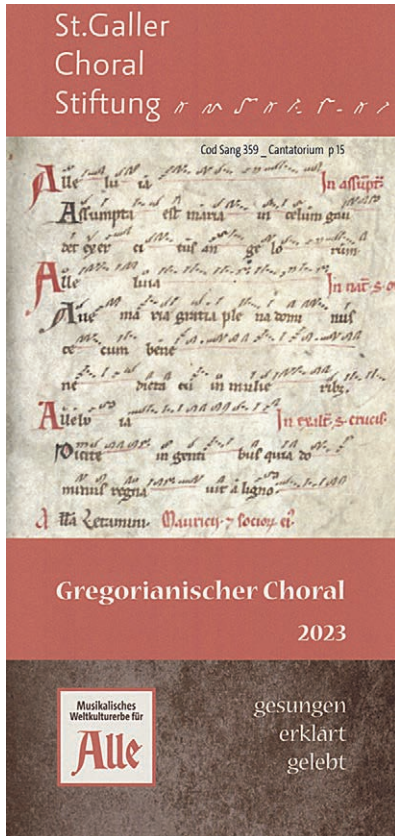 St.Galler
Choral
Stiftung
Cod Sang 359 _ Cantatorium p 15
Alle lu ia In assūpt
Assumpta est maria in celum gau
det exer ci tus an ge lo rum
Alle luia In nat s
Aue ma ria gratia ple na domi nus
te cum bene
ne dicta tu in mulie ribz
Allelu ia In exalt s crucis
Dicite in genti bus quia do
minus regna uit a ligno
A lla Letamini Mauricii 7 socior ei
Gregorianischer Choral
2023
Musikalisches
Weltkulturerbe für
Alle
gesungen
erklärt
gelebt